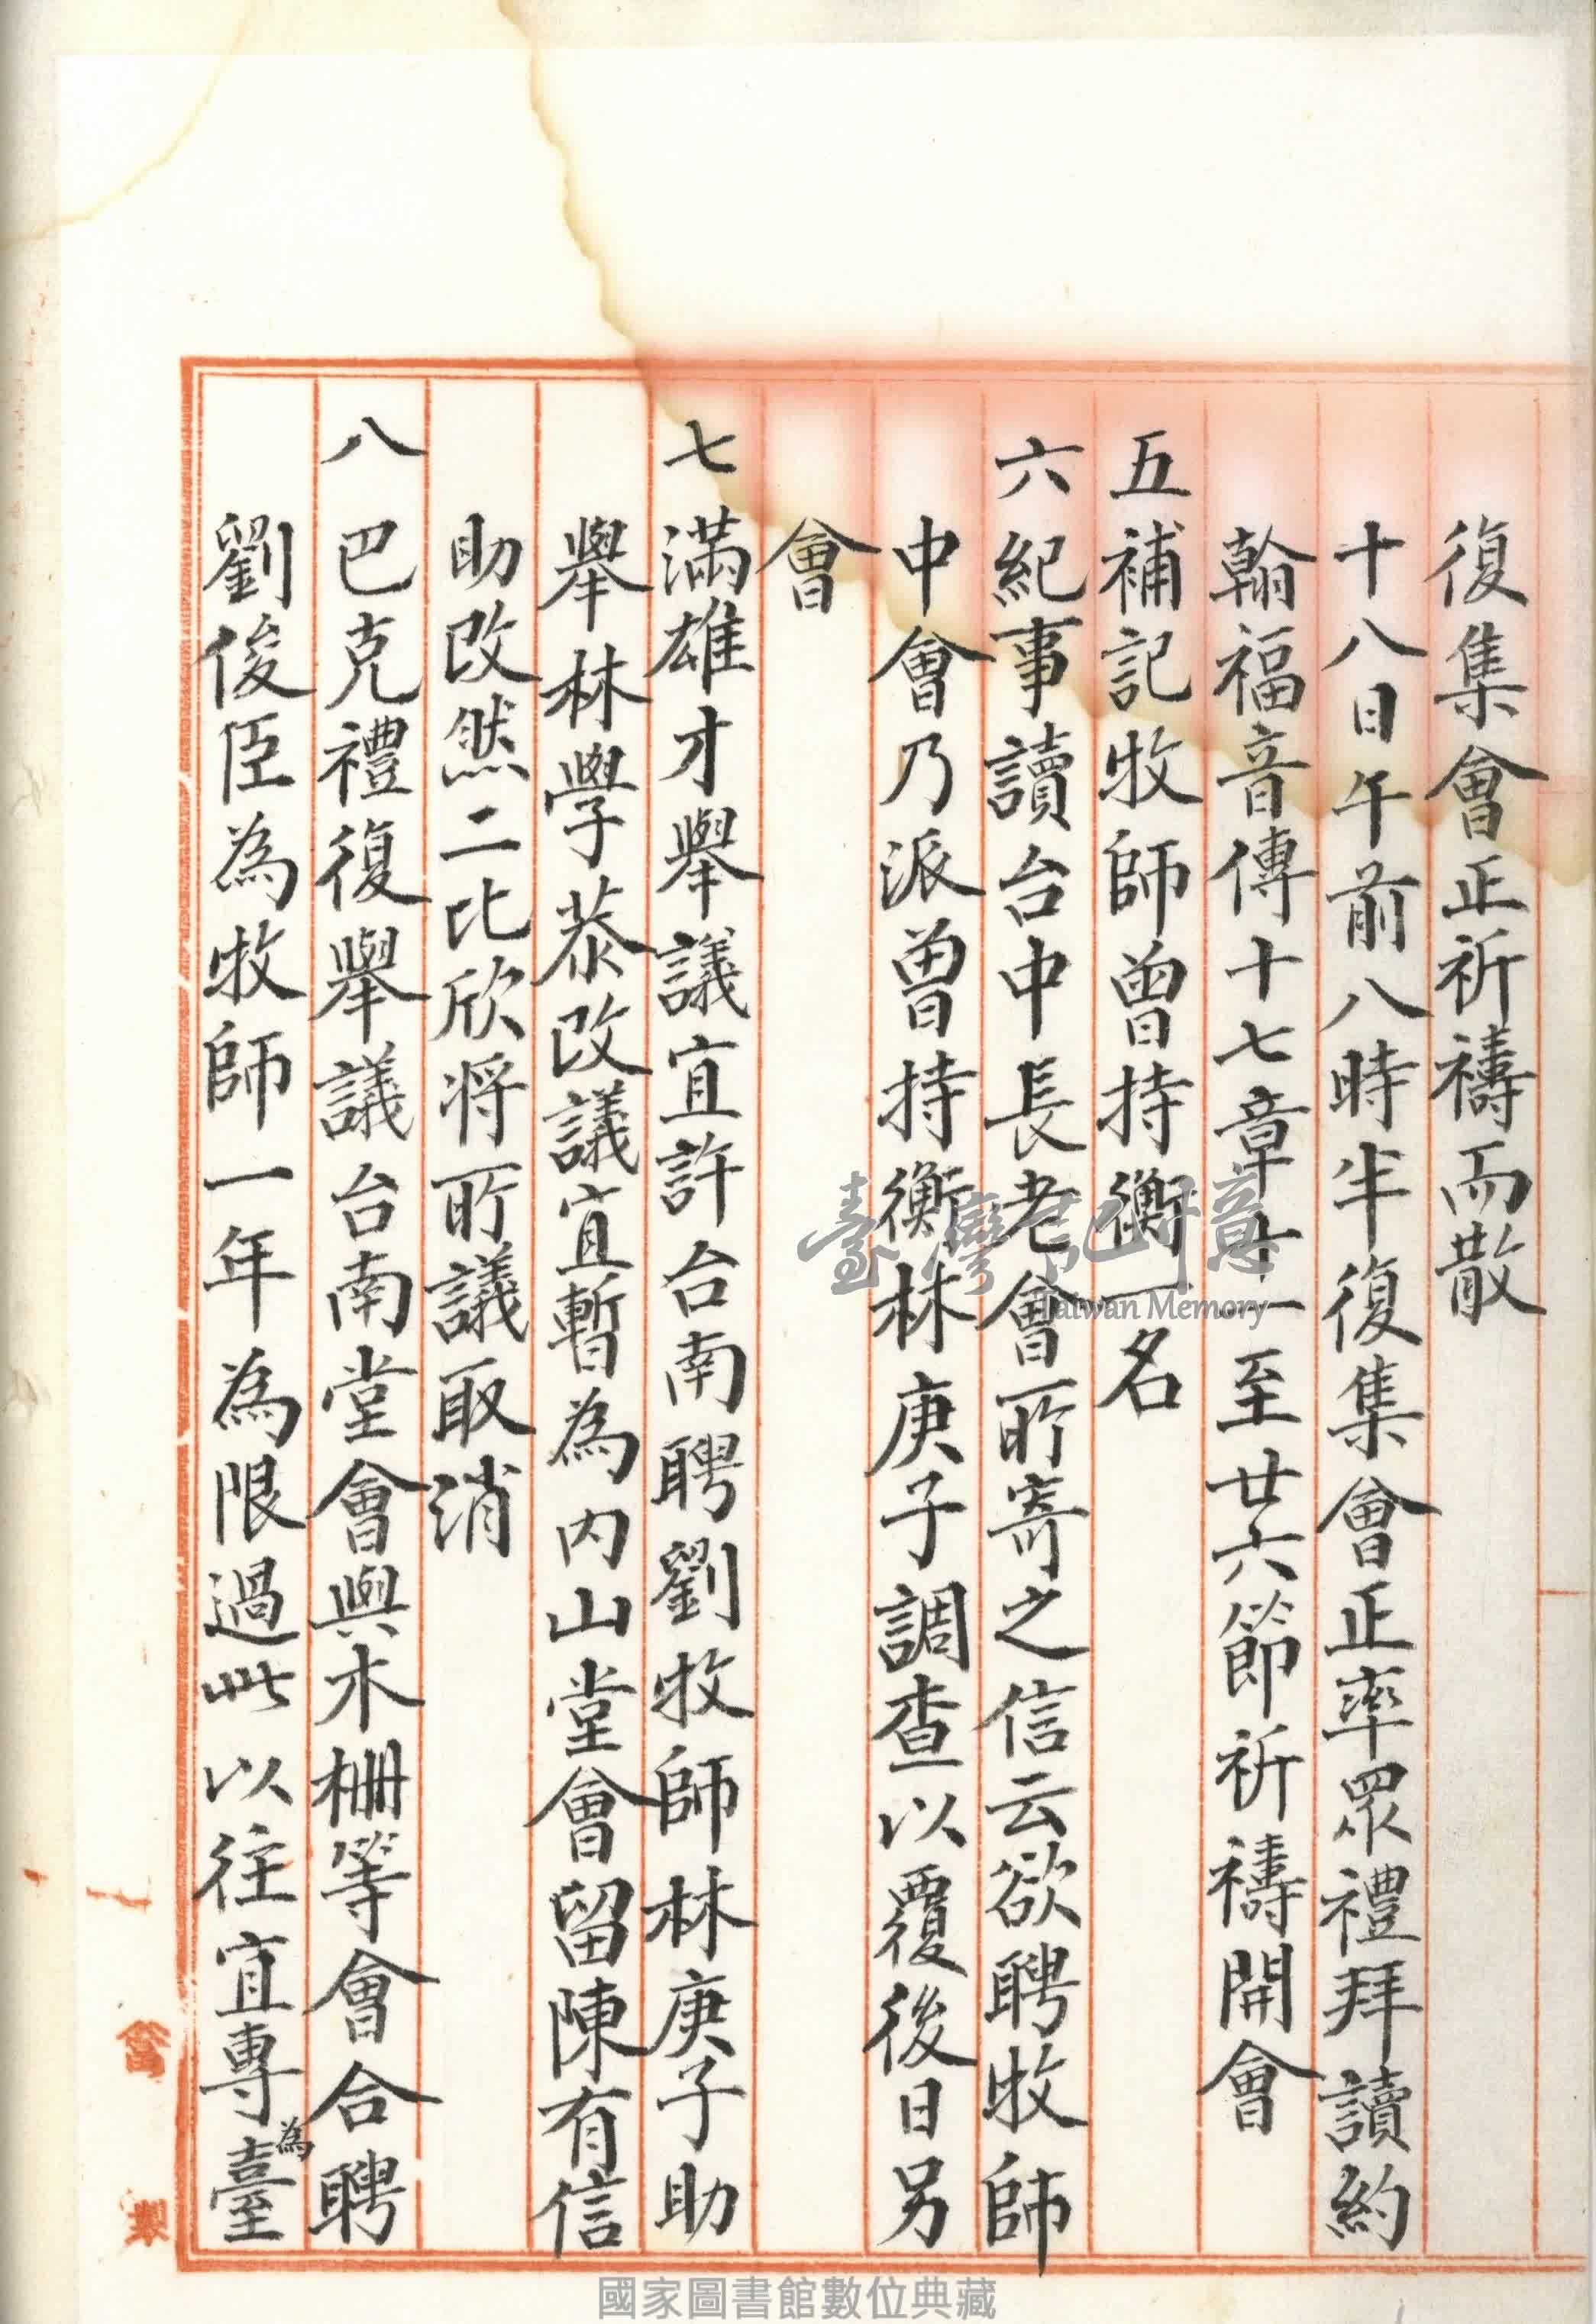 復集會正祈禱而散
十八日午前八時半復集會正率眾禮拜讀約
翰福音傳十七章十一至廿六節祈禱開會
五補記牧師曾持衡一名
六紀事讀台中長老會所寄之信云欲聘牧師
中會乃派曾持衡林庚子調查以覆後日另
會
七滿雄才舉議宜許台南聘劉牧師林庚子助
舉林學恭改議宜暫為內山堂會留陳有信
助改然二比欣將所議取消
八巴克禮復舉議台南堂會與木柵等會合聘
劉俊臣為牧師一年為限過此以往宜專為臺
臺灣記憶
Taiwan Memory
國家圖書館數位典藏